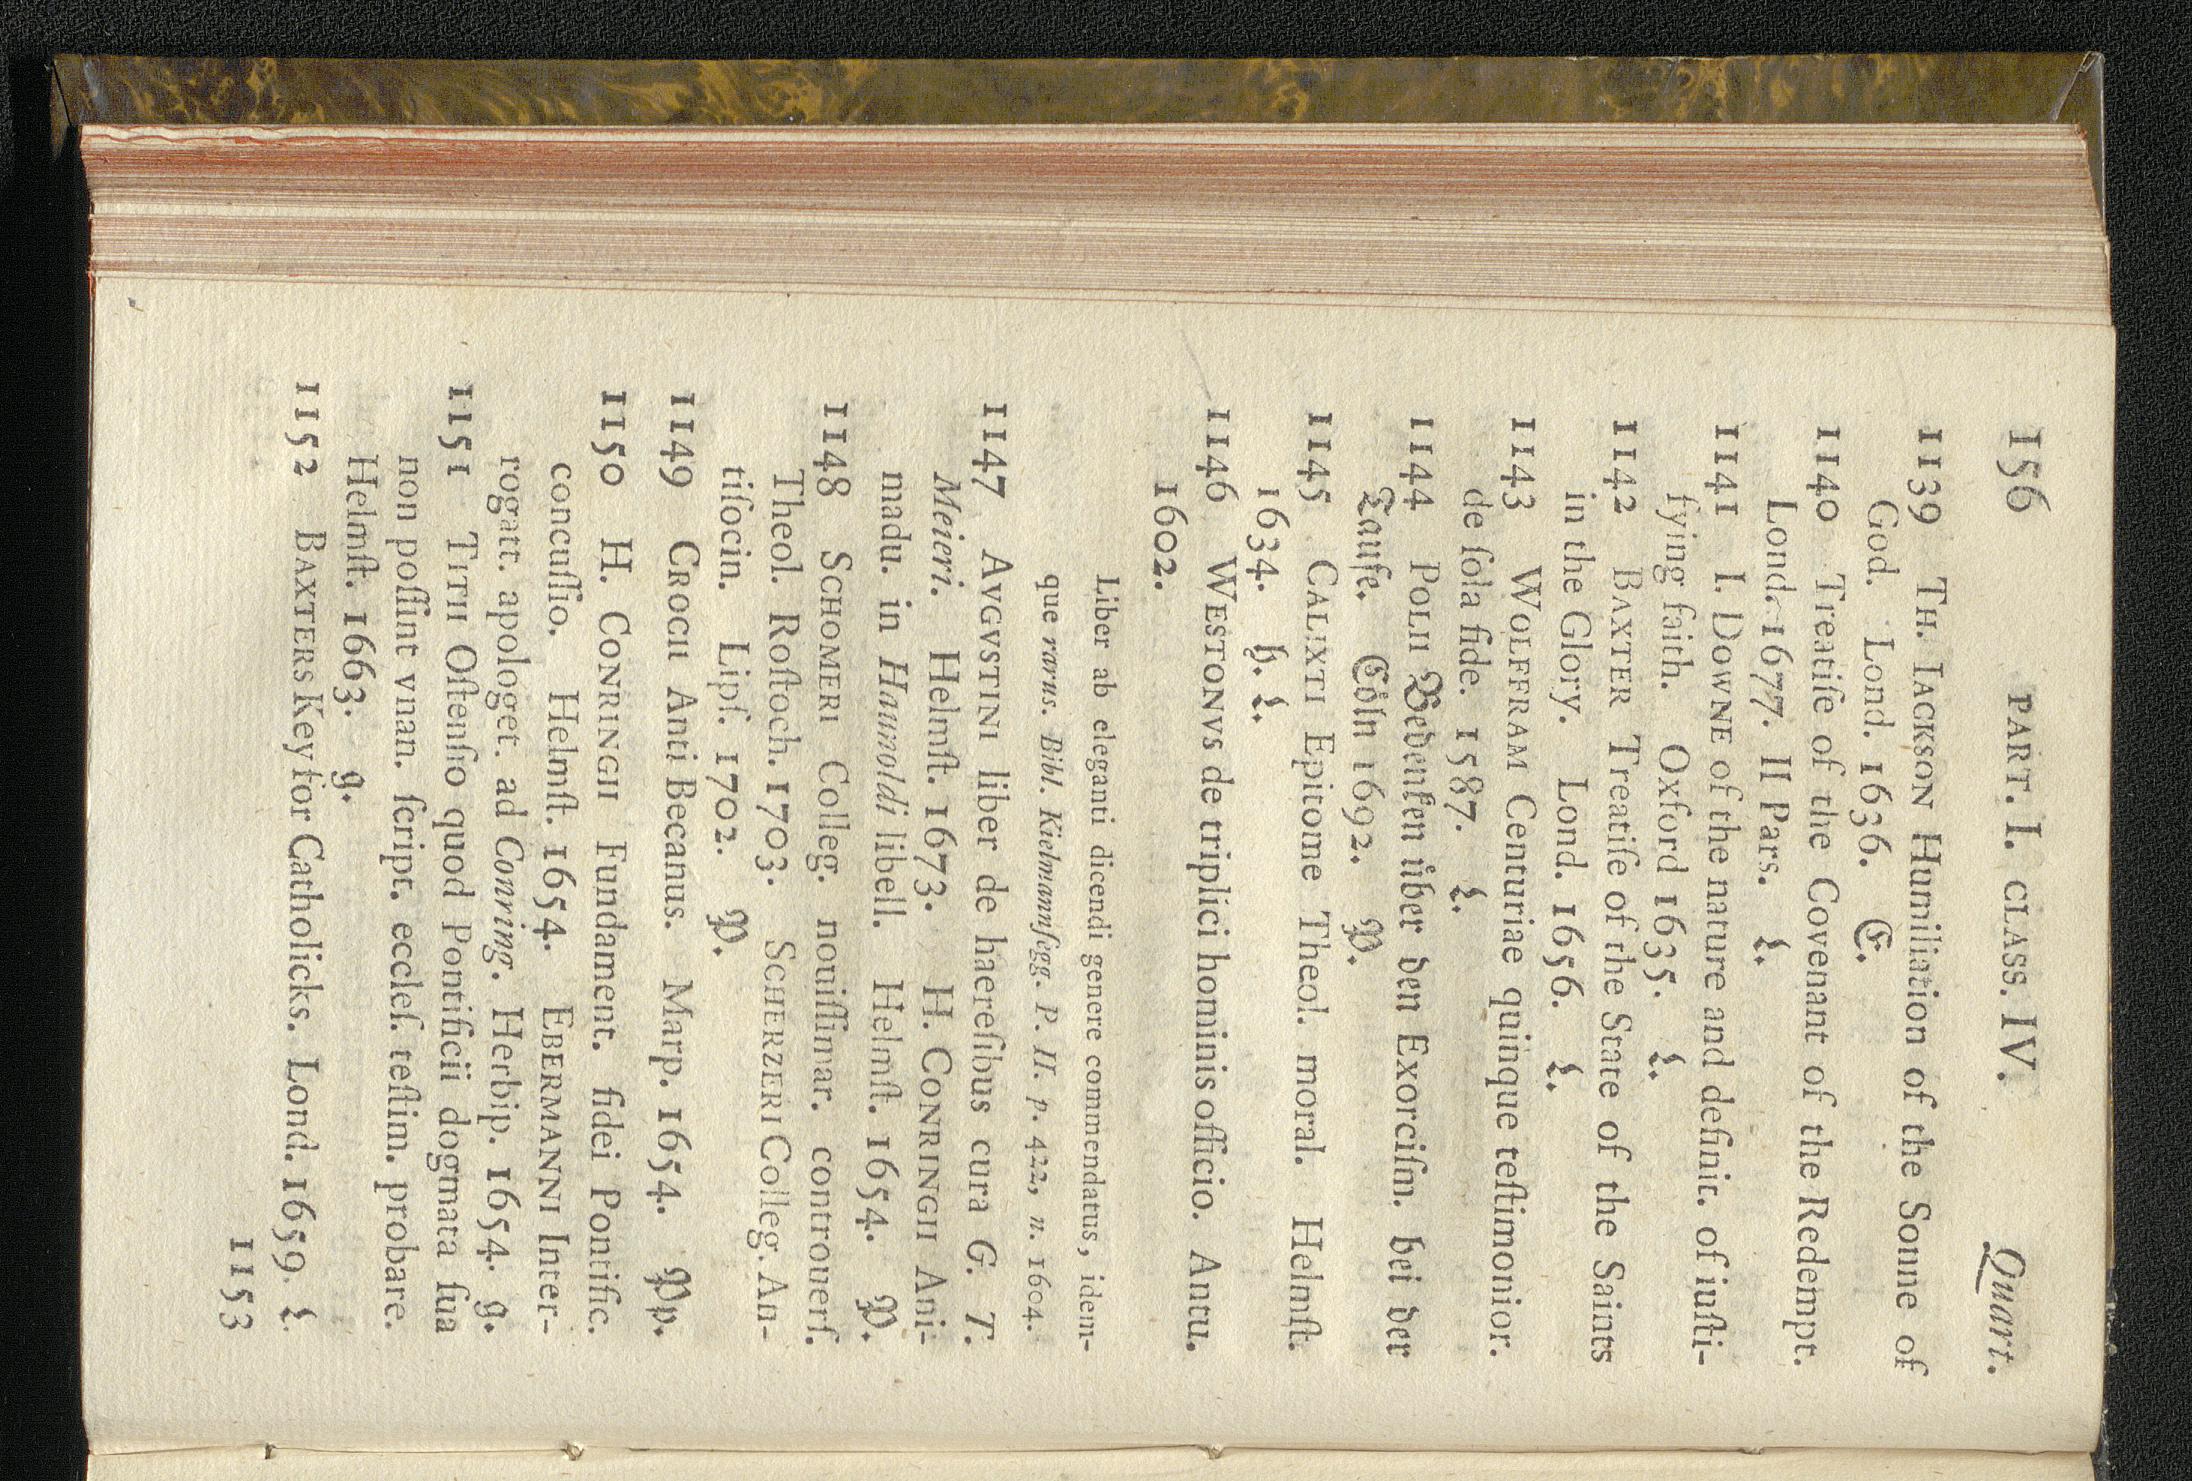 156 PART. I. CLASS. IV. Quart.
1139 TH. IACKSON Humiliation of the Sonne of
God. Lond. 1636. E.
1140 Treatiſe of the Covenant of the Redempt.
Lond. 1677. II Pars. L.
1141 I. DOWNE of the nature and definit. of iuſti-
fying faith. Oxford 1635. L.
1142 BAXTER Treatiſe of the State of the Saints
in the Glory. Lond. 1656. L.
1143 WOLFFRAM Centuriae quinque teſtimonior.
de ſola fide. 1587. L.
1144 POLII Bedenken über den Exorciſm. bei der
Taufe. Cöln 1692. P.
1145 CALIXTI Epitome Theol. moral. Helmſt.
1634. h. L.
1146 WESTONVS de triplici hominis officio. Antu.
1602.
Liber ab eleganti dicendi genere commendatus, idem-
que rarus. Bibl. Kielmannſegg. P. II. p. 422, n. 1604.
1147 AVGVSTINI liber de haereſibus cura G. T.
Meieri. Helmſt. 1673. H. CONRINGII Ani-
madu. in Haunoldi libell. Helmſt. 1654. P.
1148 SCHOMERI Colleg. nouiſſimar. controuerſ.
Theol. Roſtoch. 1703. SCHERZERI Colleg. An-
tiſocin. Lipſ. 1702. P.
1149 CROCII Anti Becanus. Marp. 1654. Pp.
1150 H. CONRINGII Fundament. fidei Pontific.
concuſſio. Helmſt. 1654. EBERMANNI Inter-
rogatt. apologet. ad Conring. Herbip. 1654. g.
1151 TITII Oſtenſio quod Pontificii dogmata ſua
non poſſint vnan. ſcript. eccleſ. teſtim. probare.
Helmſt. 1663. g.
1152 BAXTERS Key for Catholicks. Lond. 1659. L.
1153